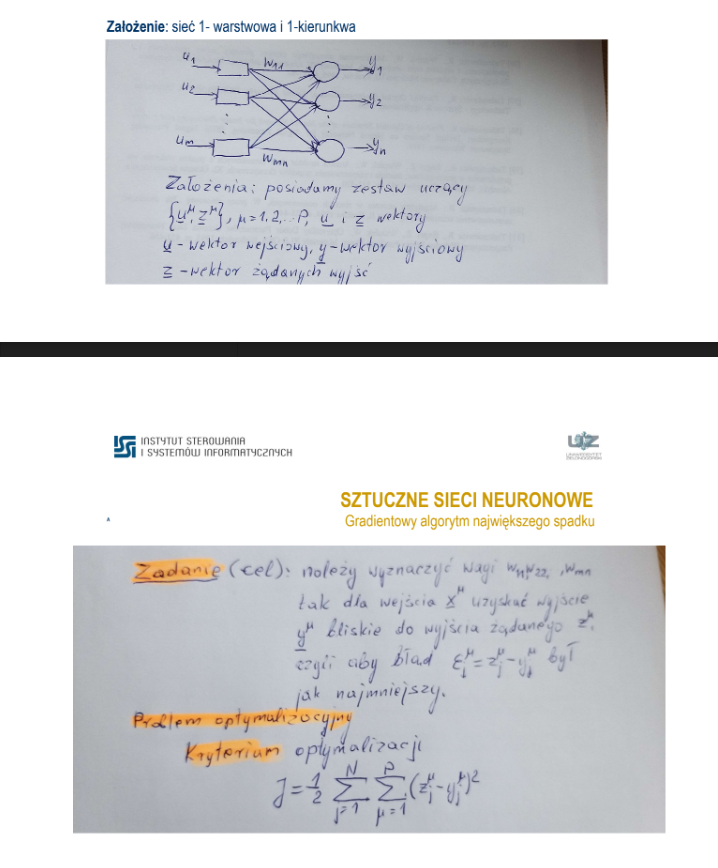 Założenie: sieć 1- warstwowa i 1-kierunkwa
u1 w11 y1
u2 y2
um wmn yn
Założenia: posiadamy zestaw uczący
{u^μ, z^μ}, μ=1,2,..P, u i z wektory
u - wektor wejściowy, y - wektor wyjściowy
z - wektor żądanych wyjść
INSTYTUT STEROWANIA
I SYSTEMÓW INFORMATYCZNYCH
UZ
UNIWERSYTET
ZIELONOGÓRSKI
SZTUCZNE SIECI NEURONOWE
Gradientowy algorytm największego spadku
Zadanie (cel): należy wyznaczyć wagi w11, w22, , wmn
tak dla wejścia x^μ uzyskać wyjście
y^μ bliskie do wyjścia żądanego z^μ,
czyli aby błąd ε_j^μ = z_j^μ - y_j^μ był
jak najmniejszy.
Problem optymalizacyjny
Kryterium optymalizacji
J = 1/2 Σ_{j=1}^{N} Σ_{μ=1}^{P} (z_j^μ - y_j^μ)^2